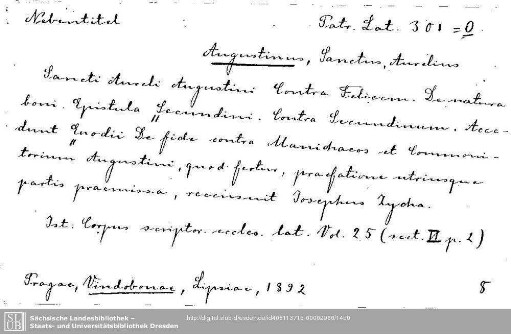 Nebentitel Patr. Lat. 301 = 0
Augustinus, Sanctus, Aurelius
Sancti Aureli Augustini Contra Felicem. De natura
boni. Epistula Secundini. Contra Secundinum. Acce-
dunt Euodii De fide contra Manichaeos et Commoni-
torium Augustini, quod fertur, praefatione utriusque
partis praemissa, recensuit Josephus Zycha.
Ist: Corpus scriptor. eccles. lat. Vol. 25 (sect. VI p. 2)
Pragae, Vindobonae, Lipsiae, 1892 8
SLUB
Sächsische Landesbibliothek –
Staats- und Universitätsbibliothek Dresden